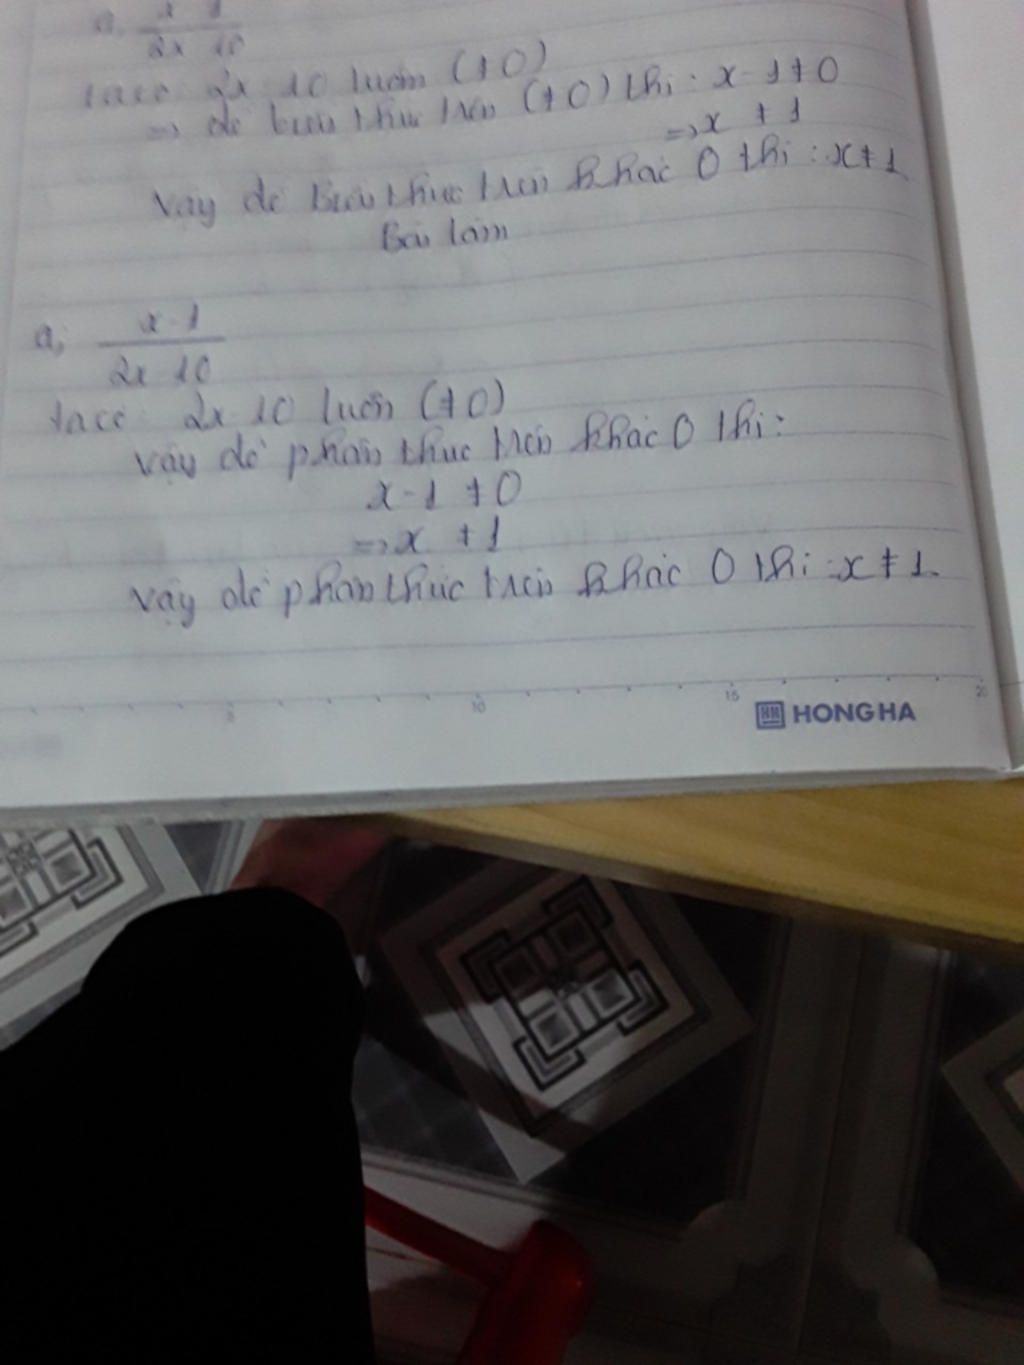 a, x-1
2x-10
ta có: 2x-10 luôn (≠0)
=> để biểu thức trên (≠0) thì: x-1≠0
=>x ≠ 1
Vậy để biểu thức trên khác 0 thì: x≠1
Bài làm
a, x-1
2x-10
ta có: 2x-10 luôn (≠0)
Vậy để phân thức trên khác 0 thì:
x-1 ≠0
=>x ≠1
Vậy để phân thức trên khác 0 thì: x≠1.
5 10 15 20
HH HONG HA